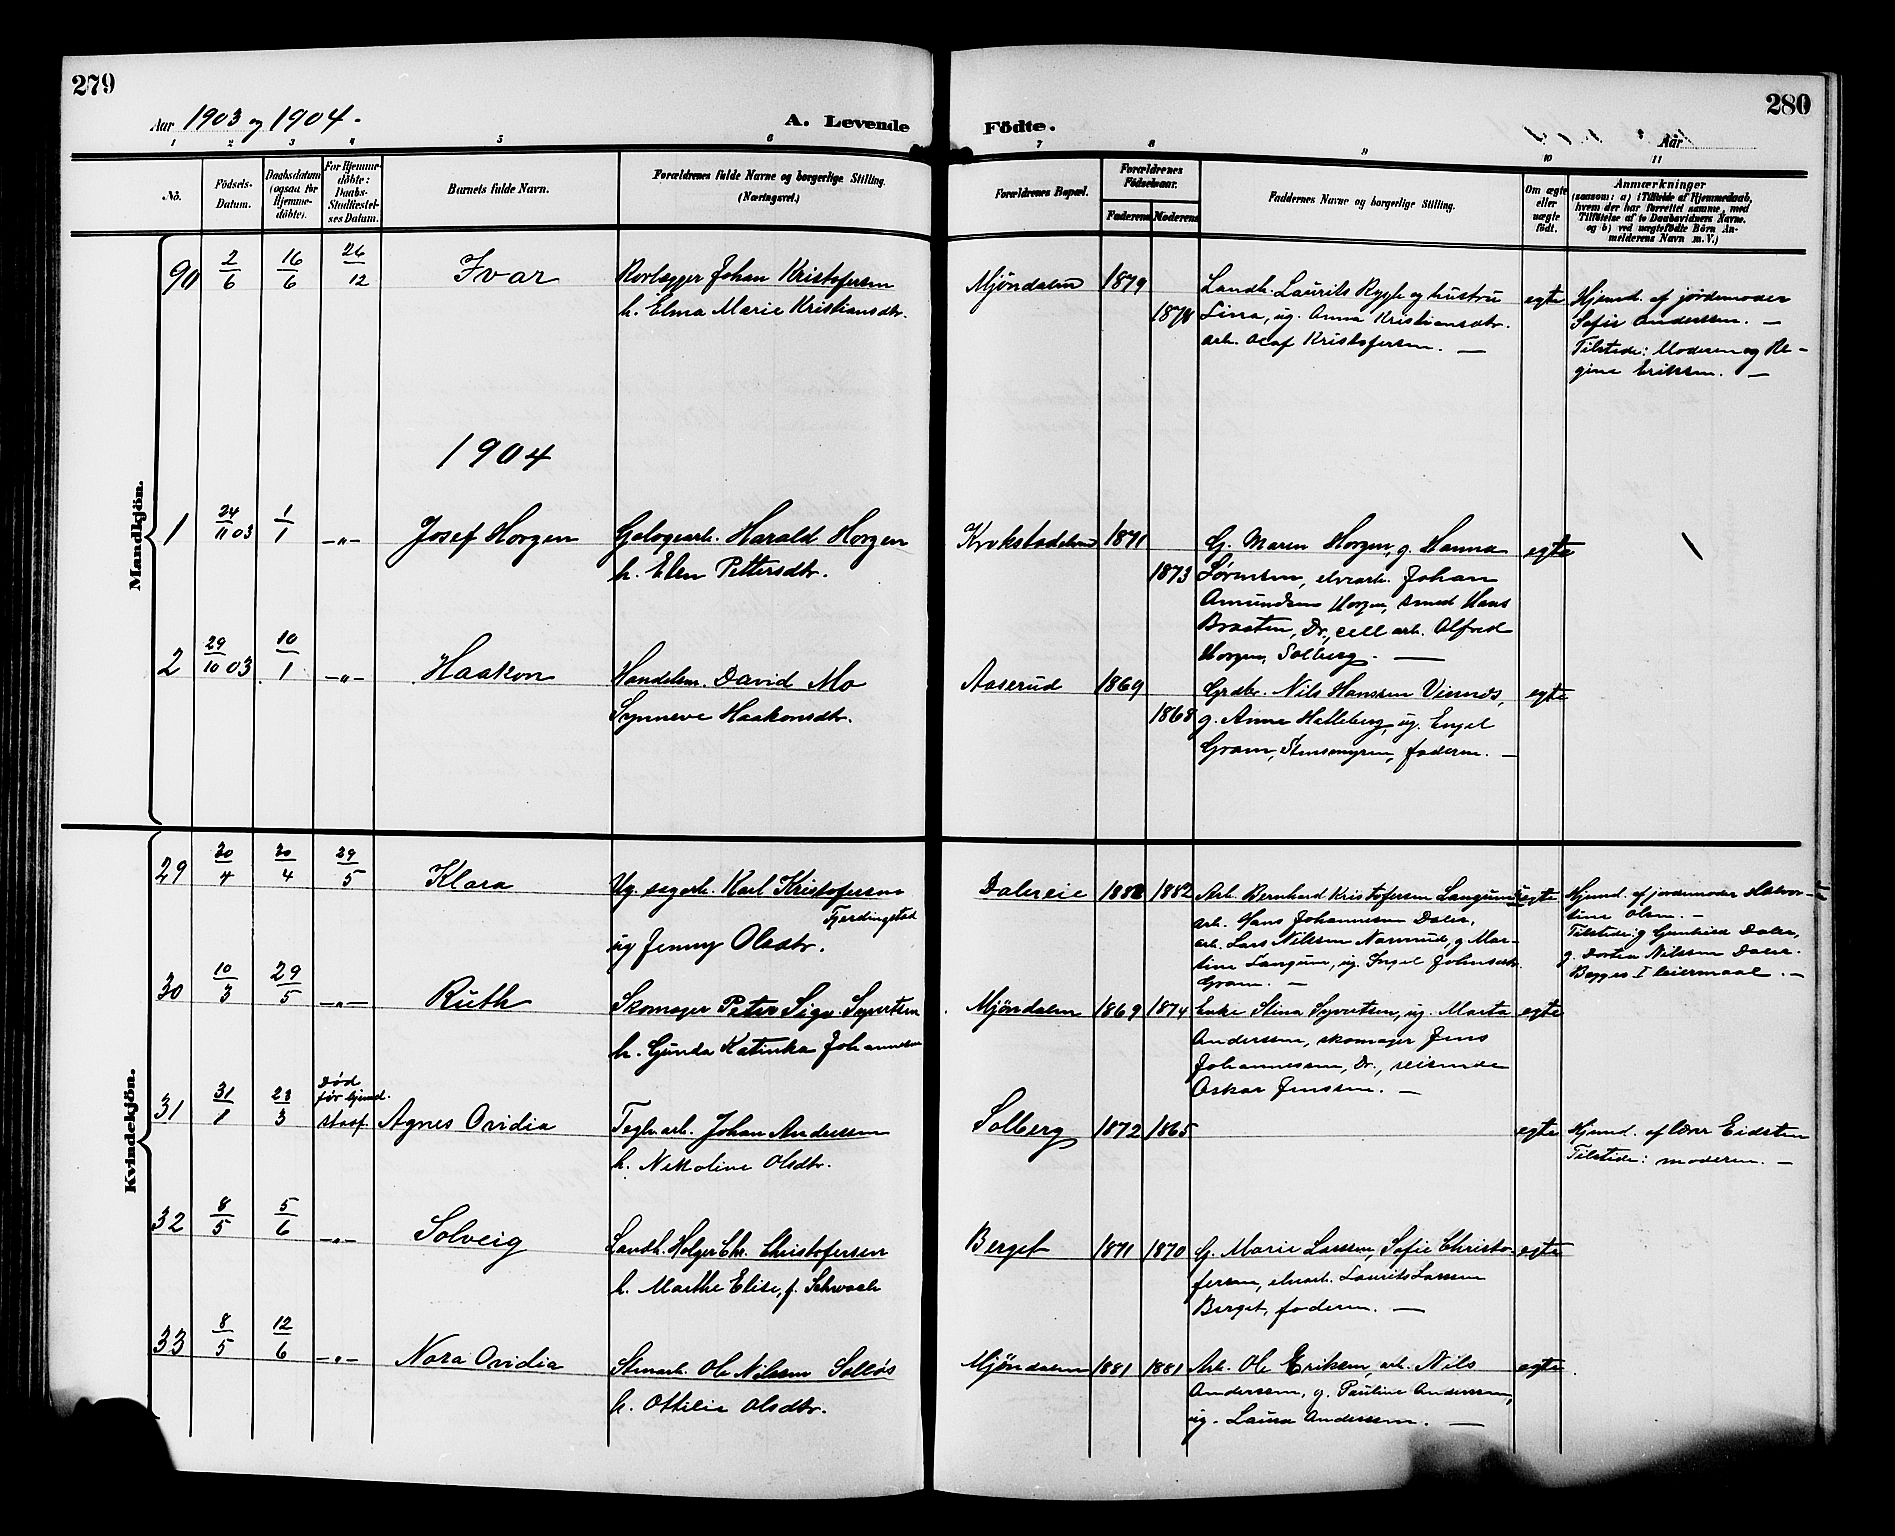 279
280
Aar 1903 og 1904.
A. Levende
Födte.
Aar
1 2 3 4 5 6
7 8 9 10 11
No.
Födsels-
Datum.
Daabsdatum
(ogsaa for
Hjemme-
döbte).
For Hjemme-
döbte:
Daabs-
Stadfæstel-
ses Datum.
Barnets fulde Navn.
Forældrenes fulde Navne og borgerlige Stilling.
(Næringsvei.)
Forældrenes Bopæl.
Forældrenes
Födselsaar.
Faderens Moderens
Faddernes Navne og borgerlige Stilling.
Om ægte
eller
uægte
födt.
Anmærkninger
(saasom: a) i Tilfælde af Hjemmedaab,
hvem der har forrettet samme, med
Tilföielse af to Daabsvidners Navne.
og b) ved uægtefödte Börn An-
melderens Navn m. V.)
Mandkjön.
90 2/6 16/6 26/12 Ivar
Rørlægger Johan Kristofersen
h. Elma Marie Kristiansdtr.
Mjøndalen 1879
Landh. Laurits Rygh og hustru
Lina, ug. Anna Kristiansdtr.
arb. Olaf Kristofersen. —
egte
Hjemd. af jordemoder
Sofie Anderssen. —
Tilstede: Moderen og Re-
gine Eriksen. —
1904
1 24/11 03 1/1 -"- Josef Horgen
Harald Horgen
h. Elen Pettersdtr.
Krokstadelven 1871
1873
G. Maren Horgen, g. Hanna
Sørensen, elvearb. Johan
Amundsen Horgen, smed Hans
Braaten, Dr., cell arb. Alfred
Horgen, Solberg. —
egte
2 29/10 03 10/1 -"- Haakon
Handelsm. David Mo
Synneve Haakonsdtr.
Aaserud 1869
1868
Grdbr. Nils Hanssen
g. Anne Halleberg, ug. Engel
Gram, Stensmyren, faderen. —
egte
Kvindekjön.
29 30/4 30/4 29/5 Klara
Ug. sagarb. Karl Kristofersen
Fjerdingstad
ug Jenny Olsdtr.
Dalereie 1882
Arb. Bernhard Kristofersen Langum
arb. Hans Johannesen Daler,
arb. Lars Nilssen Narverud, g Mar-
tine Langum, ug. Ingel Johnsdtr.
Gram. —
uegte
Hjemd. af jordemoder Halvor-
sine Olsen. —
Tilstede: g Gunhild Daler,
g. Dortea Nilssen Daler.
Begges I leiermaal. —
30 10/3 29/5 -"- Ruth
Skomager Peter Sigv. Syvertsen
h. Gunda Katinka Johannesen
Mjøndalen 1869 1874
Enke Stina Syvertsen, ug. Marta
Anderssen, skomager Jens
Johannessen, Dr., reisende
Oskar Jenssen. —
egte
31 31/1 23/3
død
før hjemd.
stadf.
Agnes Ovidia
Teglv.arb. Johan Anderssen
h. Nikoline Olsdtr.
Solberg 1872 1865
egte
Hjemd. af lærer Eidsten
Tilstede: moderen. —
32 8/5 5/6 -"- Solveig
Landh. Holger Chr. Christofersen
h. Marthe Elise, f. Schwach
Berget 1871 1870
G. Marie Larssen, Sofie Christo-
fersen, elvearb. Laurits Larssen
Berget, faderen. —
egte
33 8/5 12/6 -"- Nora Ovidia
Stenarb. Ole Nilssen Solløs
h. Ottilie Olsdtr.
Mjøndalen 1881 1881
Arb. Ole Eriksen, arb. Nils
Anderssen, g. Pauline Anderssen,
ug. Laura Anderssen. —
egte